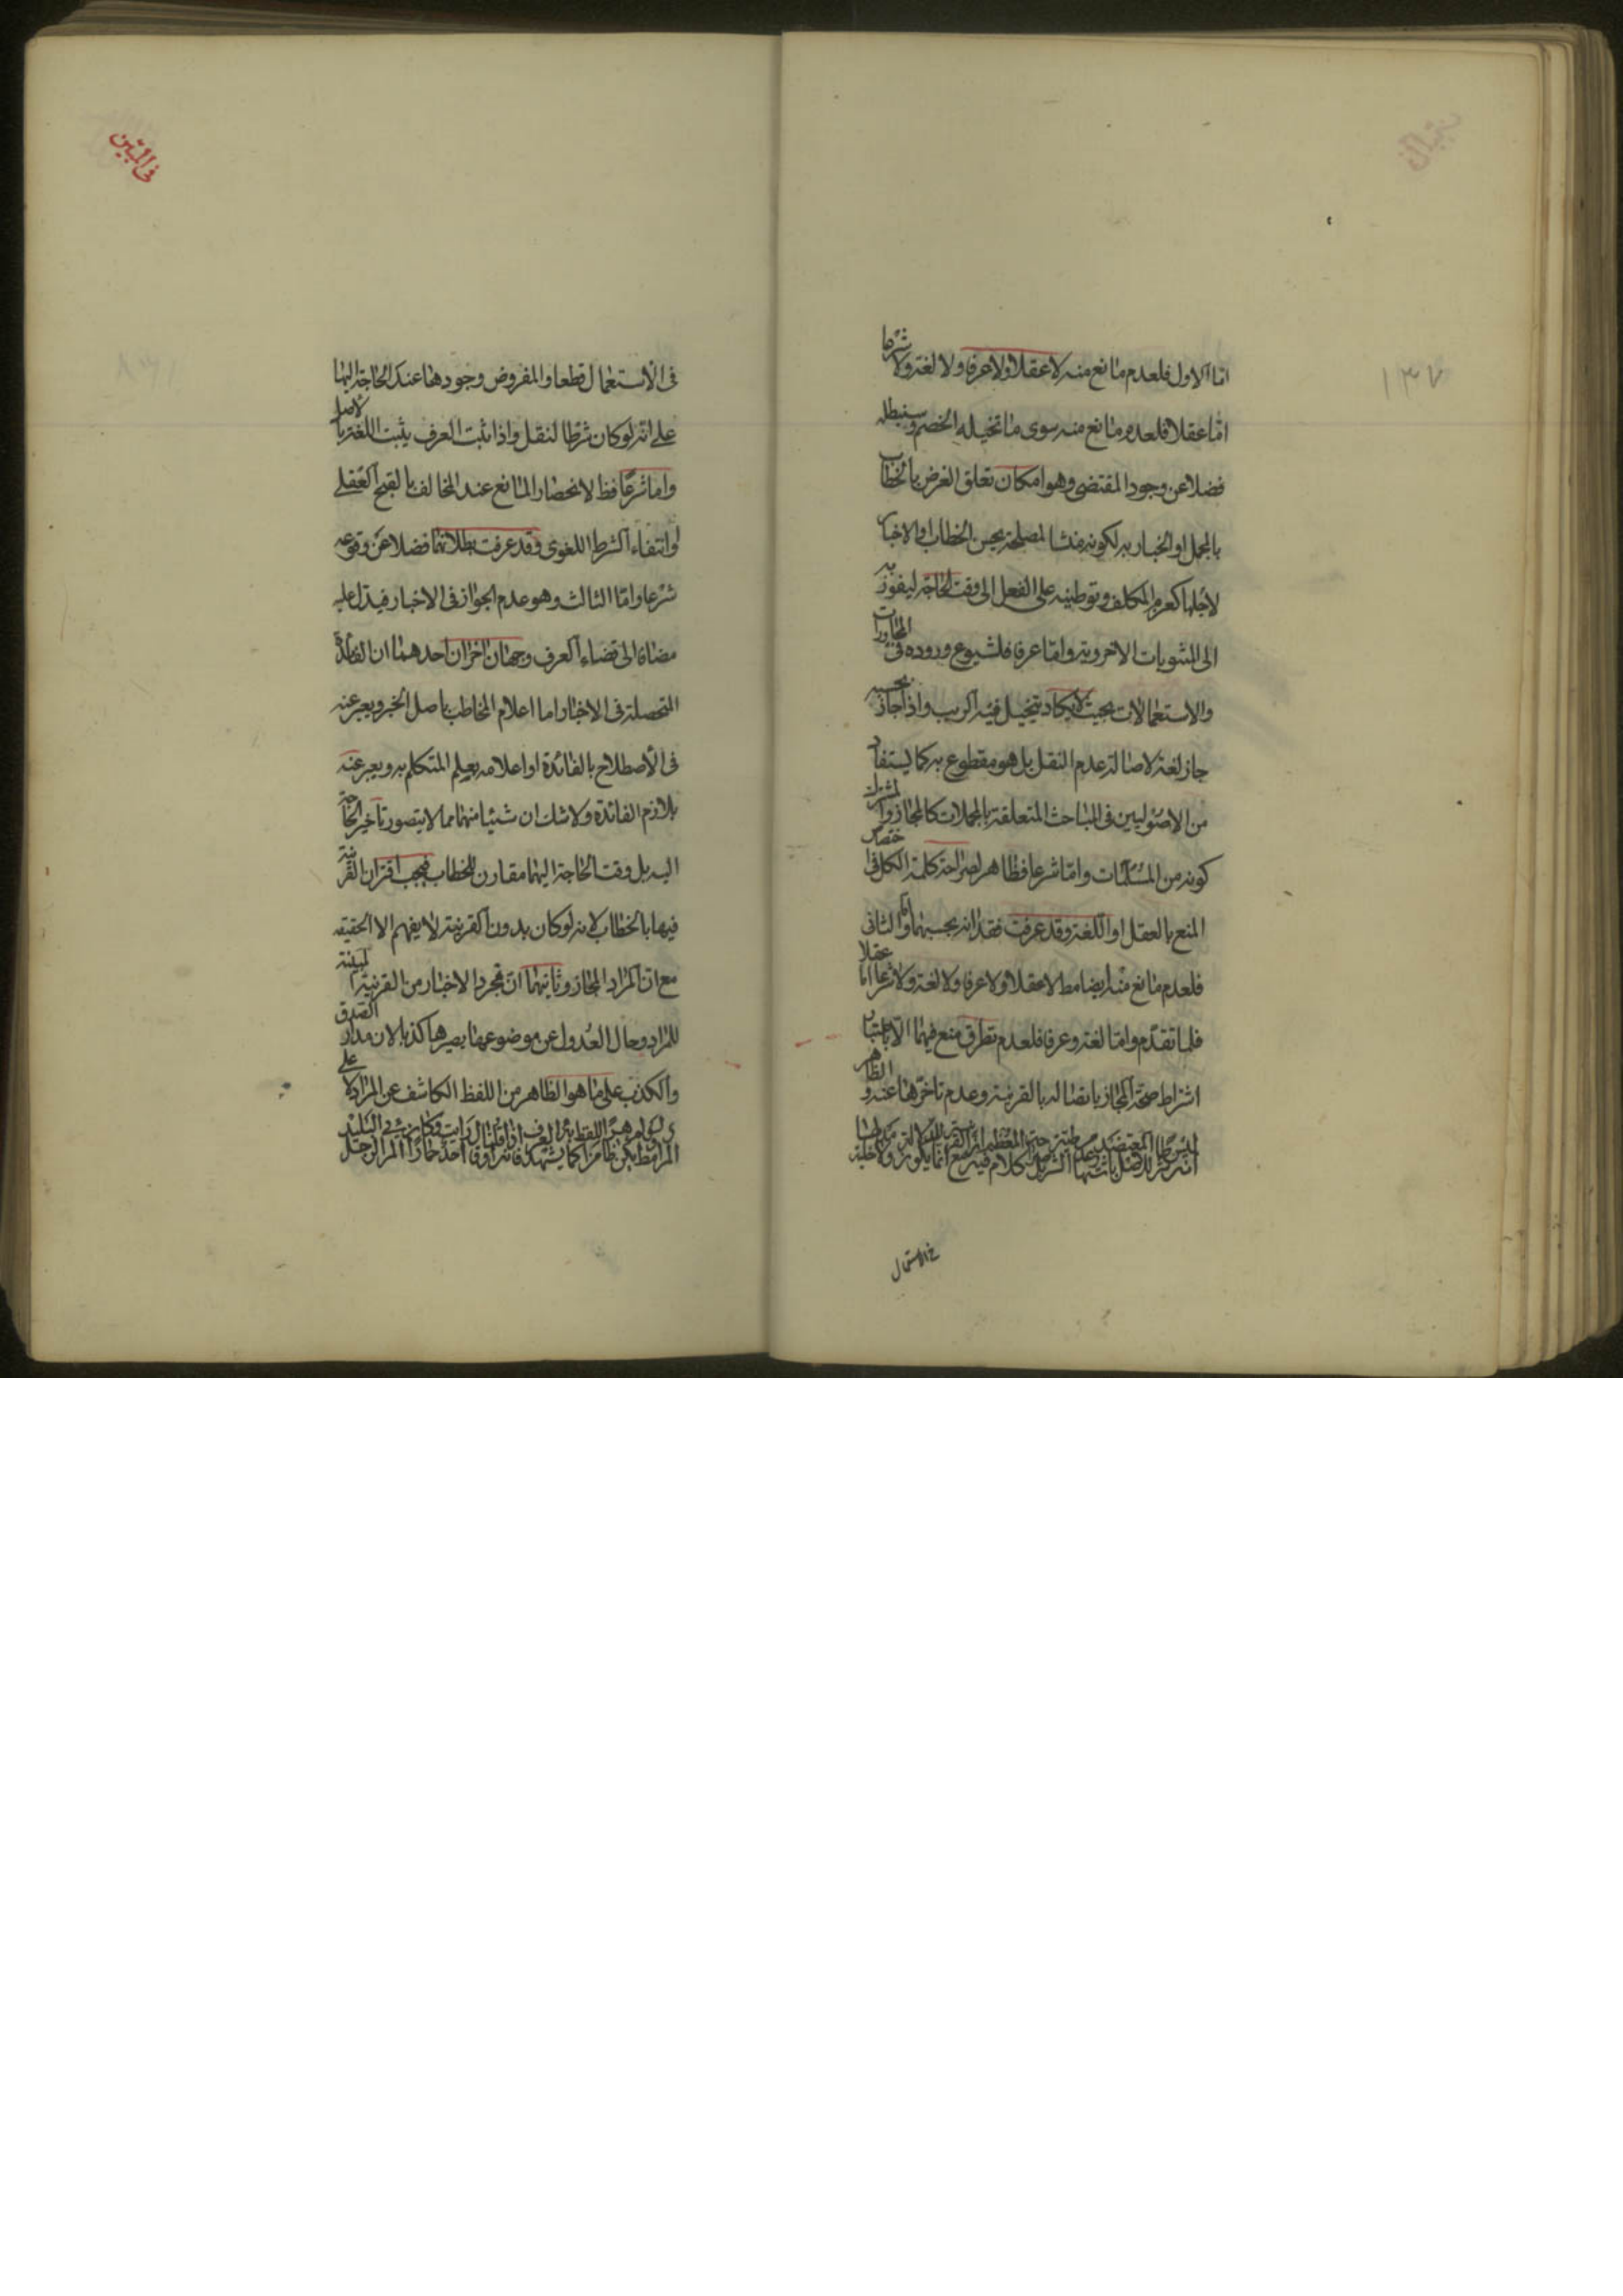 ١٣٧
اما الاول فلعدم مانع منه لا عقلا ولا عرفا ولا لغة ولا شرعا
اما عقلا فلعدم مانع منه سوى ما تخيله الخصم وسنبطله
فضلا عن وجود المقتضى وهو امكان تعلق الغرض بالخطاب
بالمجمل او اخبار به لكونه منشا لمصلحة يحسن الخطاب او الاخبار
لاجلها كعزم المكلف وتوطينه على الفعل الى وقت الحاجة ليفوز به
الى المثوبات الاخروية واما عرفا فلشيوع وروده فى المحاورات
والاستعمالات بحيث لا يكاد يتخيل فيه الريب واذا جاز بحسبه
جاز لغة لاصالة عدم النقل بل هو مقطوع به كما يستفاد
من الاصوليين فى المباحث المتعلقة بالمجملات كالمجاز والمشترك
كونه من المسلمات واما شرعا فظاهر لصراحة كلمة الكل فى اختصاص
المنع بالعقل او اللغة وقد عرفت فقدانه بحسبهما واما الثانى
فلعدم مانع منه ايضا مط لا عقلا ولا عرفا ولا لغة ولا شرعا اما عقلا
فلما تقدم واما لغة وعرفا فلعدم تطرق منع فيهما الا باعتبار
اشتراط صحة المجاز باتصاله بالقرينة وعدم تاخرها عنه والظاهر
فى الاستعمال
فى المبين
فى الاستعمال قطعا والمفروض وجودها عند الحاجة اليها
على انه لو كان شرطا لنقل واذا ثبت العرف يثبت اللغة بالاصل
واما شرعا فظ لانحصار المانع عند المخالف بالقبح العقلى
او انتفاء الشرط اللغوى وقد عرفت بطلانهما فضلا عن وقوعه
شرعا واما الثالث وهو عدم الجواز فى الاخبار فيدل عليه
مضافا الى قضاء العرف وجهان اخران احدهما ان الفائدة
المتحصلة فى الاخبار اما اعلام المخاطب باصل الخبر ويعبر عنه
فى الاصطلاح بالفائدة او اعلامه بعلم المتكلم به ويعبر عنه
بلازم الفائدة ولا شك ان شيئا منهما مما لا يتصور تاخير الحاجة
اليه بل وقت الحاجة اليهما مقارن للخطاب فيجب اقتران القرينة
فيها بالخطاب لانه لو كان بدون القرينة لا يفهم الا الحقيقه
مع ان المراد المجاز وثانيهما ان تجرد الاخبار من القرينة المبينة
للمراد وحال العدول عن موضوعها يصيرها كذبا لان مدار الصدق
والكذب على ما هو الظاهر من اللفظ الكاشف عن المراد لا على